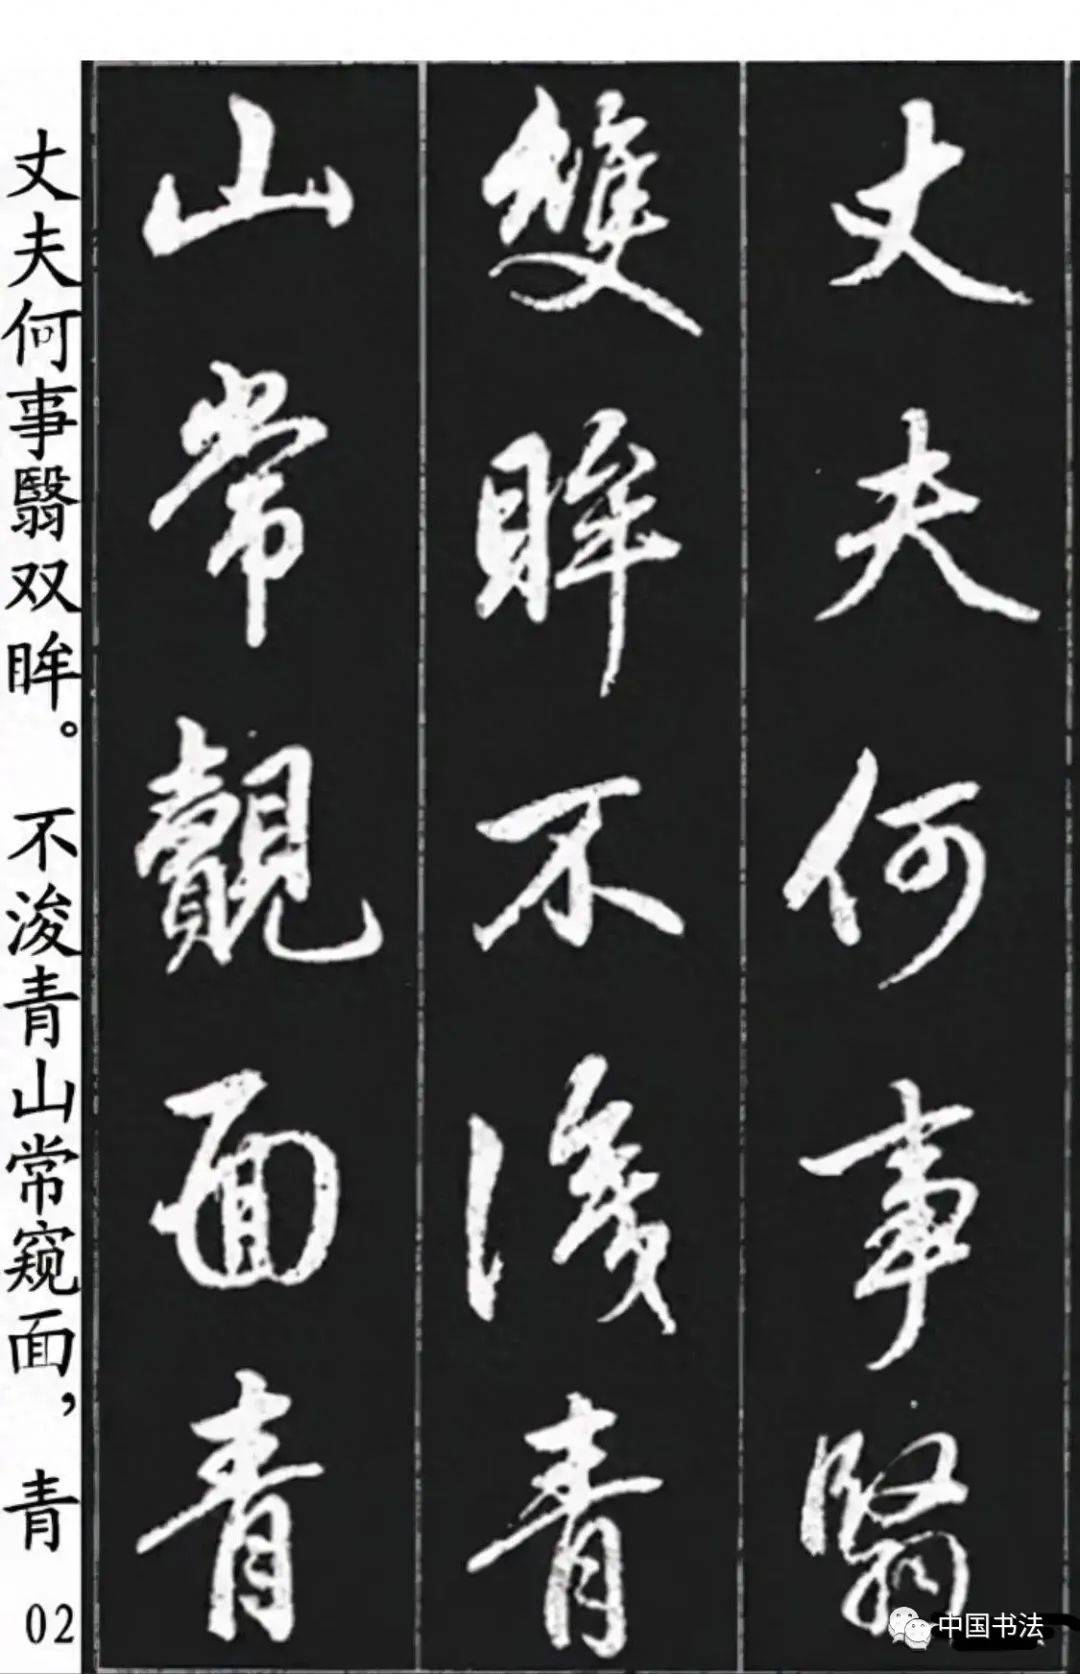 丈夫何事翳
雙眸不浚青
山常覿面青
丈夫何事翳双眸。不浚青山常窥面，青
02
中国书法